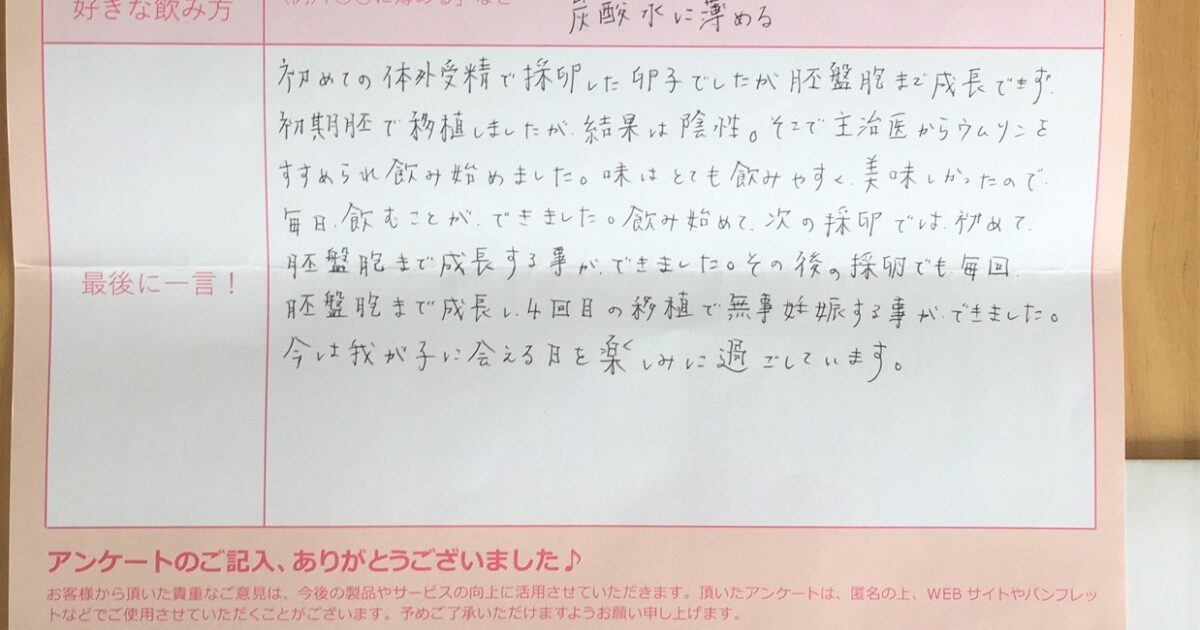 好きな飲み方
に薄める」など
炭酸水に薄める
最後に一言！
初めての体外受精で採卵した卵子でしたが胚盤胞まで成長できず、
初期胚で移植しましたが、結果は陰性。そこで主治医からウムリンを
すすめられ飲み始めました。味はとても飲みやすく、美味しかったので、
毎日、飲むことが、できました。飲み始めて、次の採卵では、初めて、
胚盤胞まで成長する事が、できました。その後の採卵でも毎回、
胚盤胞まで成長し、4回目の移植で無事妊娠する事が、できました。
今は我が子に会える日を楽しみに過ごしています。
アンケートのご記入、ありがとうございました♪
お客様から頂いた貴重なご意見は、今後の製品やサービスの向上に活用させていただきます。頂いたアンケートは、匿名の上、WEB サイトやパンフレッ
トなどでご使用させていただくことがございます。予めご了承いただけますようお願い申し上げます。